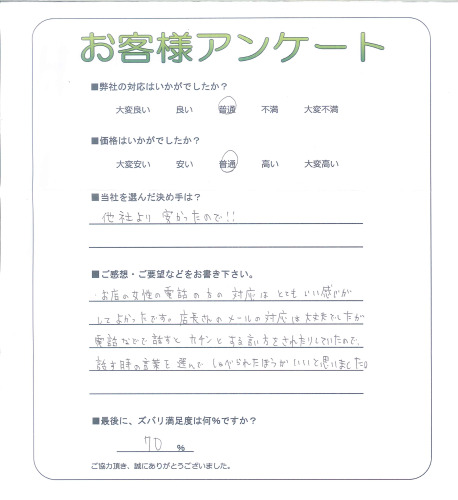 お客様アンケート
■弊社の対応はいかがでしたか？
大変良い 良い 普通 不満 大変不満
■価格はいかがでしたか？
大変安い 安い 普通 高い 大変高い
■当社を選んだ決め手は？
他社より安かったので!!
■ご感想・ご要望などをお書き下さい。
・お店の女性の電話の方の対応はとてもいい感じが
してよかったです。店長さんのメールの対応は大丈夫でしたが
電話などで話すとカチンとする言い方をされたりしていたので、
話す時の言葉を選んでしゃべられたほうがいいと思いました。
■最後に、ズバリ満足度は何%ですか？
70 %
ご協力頂き、誠にありがとうございました。